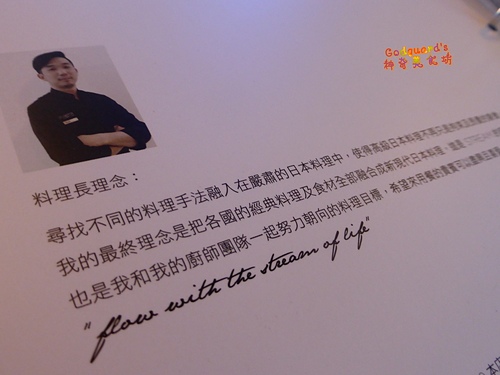 Godguard's
神奇亮記坊
料理長理念：
尋找不同的料理手法融入在嚴肅的日本料理中，使得高級日本料理不再
我的最終理念是把各國的經典料理及食材全部融合成新現代日本料理，這是
也是我和我的廚師團隊一起努力朝向的料理目標，希望來用餐的貴賓可以
"flow with the stream of life"